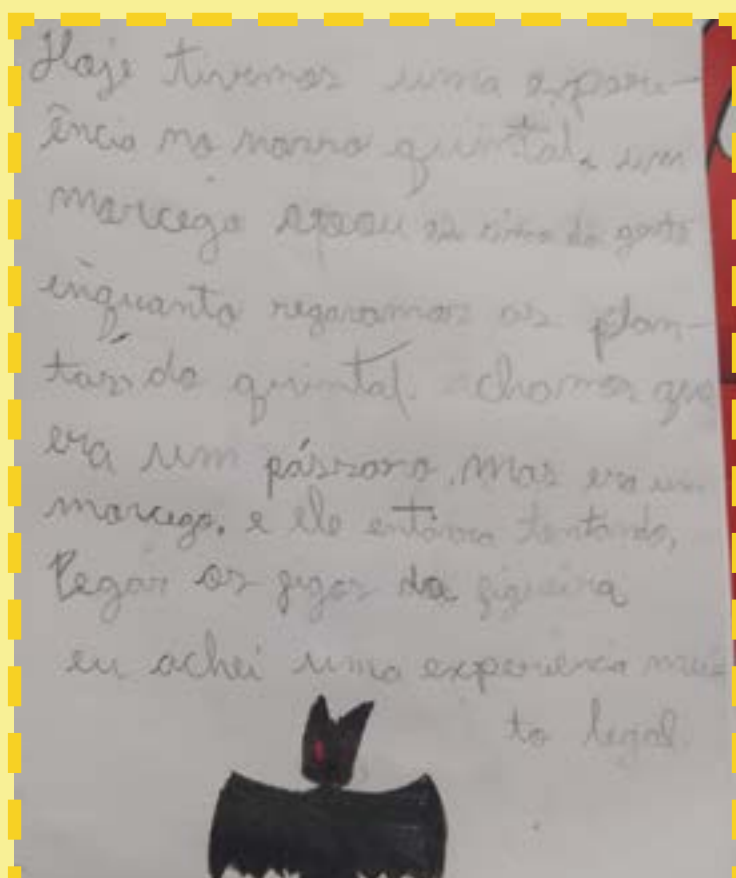 Hoje tivemos uma experi-
ência no nosso quintal, um
morcego voou em cima da gente
enquanto regavamos as plan-
tas do quintal. achamos que
era um pássaro, mas era um
morcego. e ele estava tentando,
Pegar os figos da figueira
eu achei uma experiencia mui
to legal.